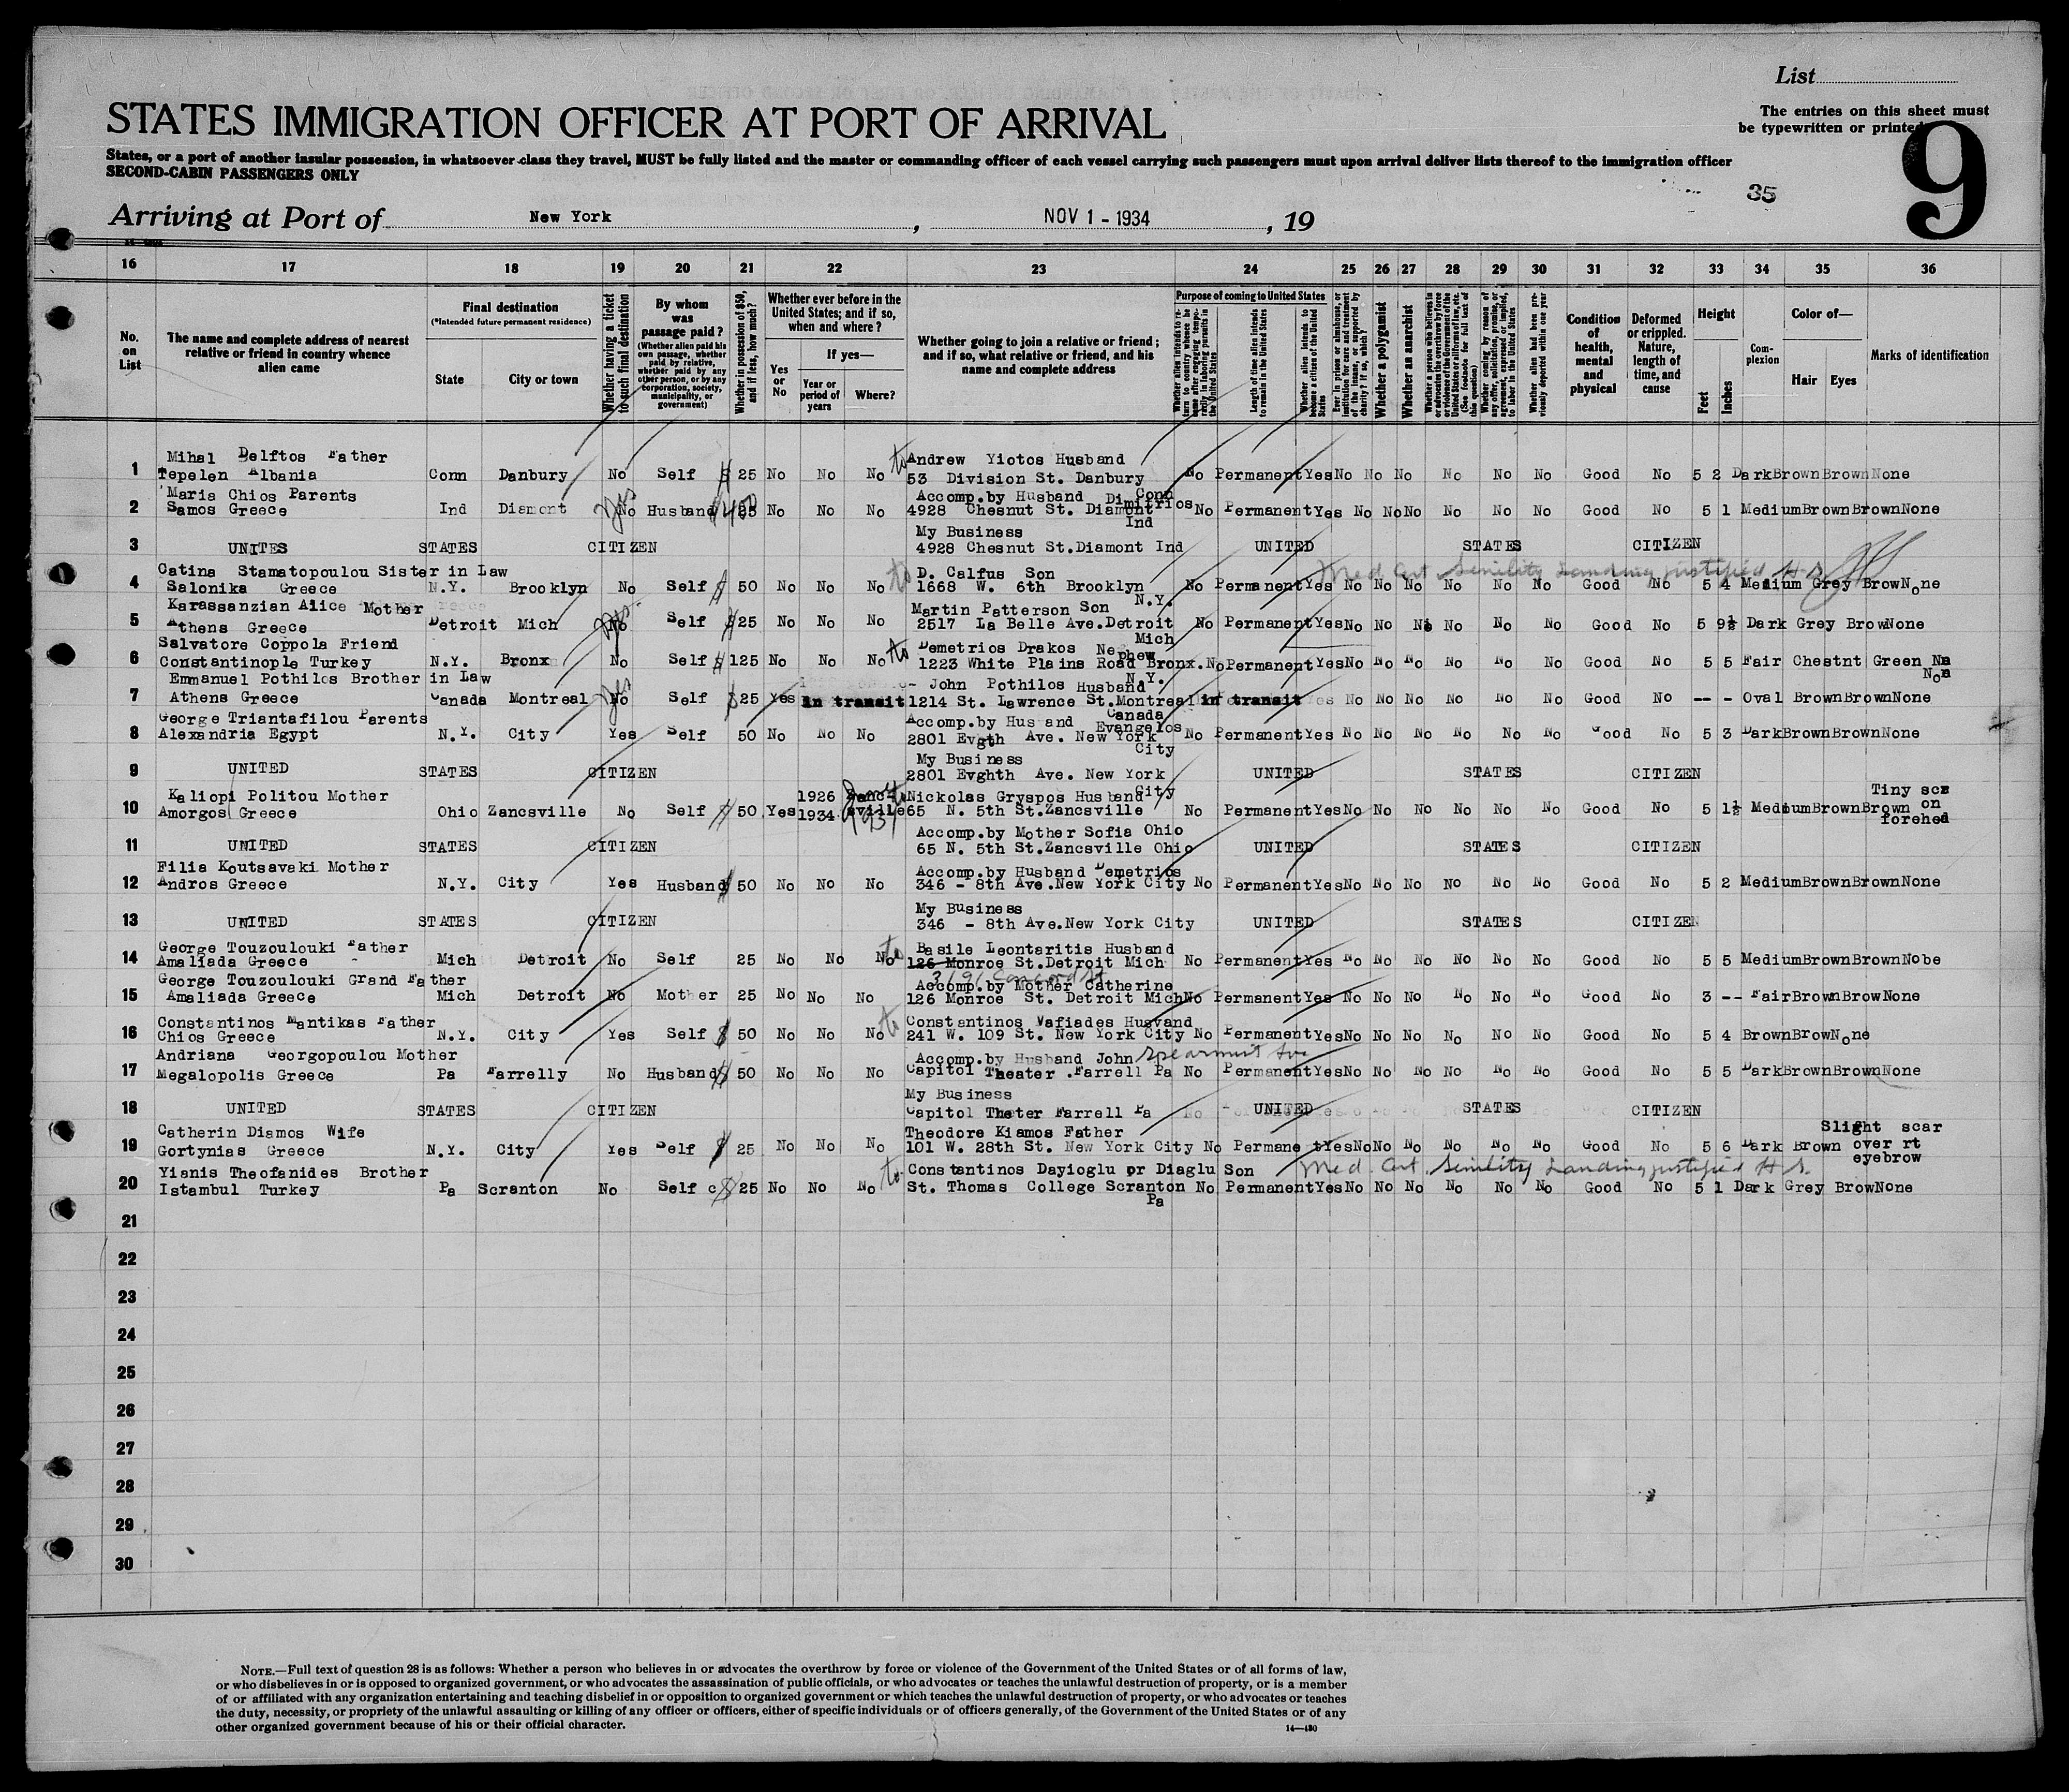 List
STATES IMMIGRATION OFFICER AT PORT OF ARRIVAL
The entries on this sheet must
be typewritten or printed
9
States, or a port of another insular possession, in whatsoever class they travel, MUST be fully listed and the master or commanding officer of each vessel carrying such passengers must upon arrival deliver lists thereof to the immigration officer
SECOND-CABIN PASSENGERS ONLY
35
Arriving at Port of New York, NOV 1 - 1934, 19
16 17 18 19 20 21 22 23 24 25 26 27 28 29 30 31 32 33 34 35 36
No. on List
The name and complete address of nearest relative or friend in country whence alien came
Final destination
(*Intended future permanent residence)
State
City or town
Whether having a ticket to such final destination
By whom was passage paid?
(Whether alien paid his own passage, whether paid by relative, whether paid by any other person, or by any corporation, society, municipality, or government)
Whether in possession of $50, and if less, how much?
Whether ever before in the United States; and if so, when and where?
Yes or No
If yes—
Year or period of years
Where?
Whether going to join a relative or friend; and if so, what relative or friend, and his name and complete address
Purpose of coming to United States
Whether alien intends to return to country whence he came after engaging temporarily in laboring pursuits in the United States
Length of time alien intends to remain in the United States
Whether alien intends to become a citizen of the United States
Ever in prison or almshouse, or institution for care and treatment of the insane, or supported by charity? if so, which?
Whether a polygamist
Whether an anarchist
Whether a person who believes in or advocates the overthrow by force or violence of the Government of the United States or all forms of law, etc. (See footnote for full text of this question)
Whether coming by reason of any offer, solicitation, promise, or agreement, expressed or implied, to labor in the United States
Whether alien had been previously deported within one year
Condition of health, mental and physical
Deformed or crippled. Nature, length of time, and cause
Height
Feet
Inches
Complexion
Color of—
Hair Eyes
Marks of identification
Mihal Delftos Father to Andrew Yiotos Husband
1 Tepelen Albania Conn Danbury No Self $ 25 No No No 53 Division St. Danbury No Permanent Yes No No No No No No Good No 5 2 Dark Brown Brown None
Conn
Maria Chios Parents Accomp.by Husband Dimitrios
2 Samos Greece Ind Diamont No Yes Husband No No No 4928 Chesnut St. Diamont No Permanent Yes No No No No No No Good No 5 1 Medium Brown Brown None
Ind
My Business
3 UNITES STATES CITIZEN 4928 Chesnut St.Diamont Ind UNITED STATES CITIZEN
Catina Stamatopoulou Sister in Law to D. Calfus Son Med Cert Senility Landing justified H S
4 Salonika Greece N.Y. Brooklyn No Self $ 50 No No No 1668 W. 6th Brooklyn No Permanent Yes No No No No No No Good No 5 4 Medium Grey Brow None
N.Y.
Karassanzian Alice Mother Martin Patterson Son
5 Athens Greece Detroit Mich No Yes Self $ 25 No No No 2517 La Belle Ave.Detroit No Permanent Yes No No No No No No Good No 5 9½ Dark Grey Brow None
Mich
Salvatore Coppola Friend to Demetrios Drakos Nephew
6 Constantinople Turkey N.Y. Bronx No Self $ 125 No No No 1223 White Plains Road Bronx. No Permanent Yes No No No No No No Good No 5 5 Fair Chestnt Green
N.Y.
Emmanuel Pothilos Brother in Law John Pothilos Husband
7 Athens Greece Canada Montreal No Yes Self $ 25 Yes in transit 1214 St. Lawrence St.Montreal in transit Yes No No No No No No Good No -- - Oval Brown Brown None
Canada
George Triantafilou Parents Accomp.by Husand Evangelos
8 Alexandria Egypt N.Y. City Yes Self 50 No No No 2801 Evgth Ave. New York No Permanent Yes No No No No No No Good No 5 3 Dark Brown Brown None
City
My Business
9 UNITED STATES CITIZEN 2801 Evghth Ave. New York UNITED STATES CITIZEN
City
Kaliopi Politou Mother 1926 Nickolas Gryspos Husband Tiny sca
10 Amorgos Greece Ohio Zancsville No Self $ 50 Yes 1934 65 N. 5th St.Zancsville No Permanent Yes No No No No No No Good No 5 1½ Medium Brown Brown on forehed
Accomp.by Mother Sofia Ohio
11 UNITED STATES CITIZEN 65 N. 5th St.Zancsville Ohio UNITED STATES CITIZEN
Filia Koutsavaki Mother Accomp.by Husband Demetrios
12 Andros Greece N.Y. City Yes Husband $ 50 No No No 346 - 8th Ave.New York City No Permanent Yes No No No No No No Good No 5 2 Medium Brown Brown None
My Business
13 UNITED STATES CITIZEN 346 - 8th Ave.New York City UNITED STATES CITIZEN
George Touzoulouki Father to Basile Leontaritis Husband
14 Amaliada Greece Mich Detroit No Self 25 No No No 126 Monroe St.Detroit Mich No Permanent Yes No No No No No No Good No 5 5 Medium Brown Brown Nobe
3696 Concord St
George Touzoulouki Grand Father Accomp.by Mother Catherine
15 Amaliada Greece Mich Detroit No Mother 25 No No No 126 Monroe St. Detroit Mich No Permanent Yes No No No No No No Good No 3 -- Fair Brown Brow None
Constantinos Mantikas Father to Constantinos Mafiades Husvand
16 Chios Greece N.Y. City Yes Self $ 50 No No No 241 W. 109 St. New York City No Permanent Yes No No No No No No Good No 5 4 Brown Brow None
Andriana Georgopoulou Mother Accomp.by Husband John
17 Megalopolis Greece Pa Farrelly No Husband $ 50 No No No Capitol Theater .Farrell Pa No Permanent Yes No No No No No No Good No 5 5 Dark Brown Brown None
My Business
18 UNITED STATES CITIZEN Capitol Theter Farrell Pa UNITED STATES CITIZEN
Catherin Diamos Wife Theodore Kiamos Father Slight scar
19 Gortynias Greece N.Y. City Yes Self $ 25 No No No 101 W. 28th St. New York City No Permane t Yes No No No No No No Good No 5 6 Dark Brown over rt eyebrow
Yianis Theofanides Brother to Constantinos Dayioglu or Diaglu Son Med. Cert. Senility Landing justified H S.
20 Istambul Turkey Pa Scranton No Self $ 25 No No No St. Thomas College Scranton No Permanent Yes No No No No No No Good No 5 1 Dark Grey Brow None
Pa
21
22
23
24
25
26
27
28
29
30
NOTE.—Full text of question 28 is as follows: Whether a person who believes in or advocates the overthrow by force or violence of the Government of the United States or of all forms of law,
or who disbelieves in or is opposed to organized government, or who advocates the assassination of public officials, or who advocates or teaches the unlawful destruction of property, or is a member
of or affiliated with any organization entertaining and teaching disbelief in or opposition to organized government or which teaches the unlawful destruction of property, or who advocates or teaches
the duty, necessity, or propriety of the unlawful assaulting or killing of any officer or officers, either of specific individuals or of officers generally, of the Government of the United States or of any
other organized government because of his or their official character.
14—430